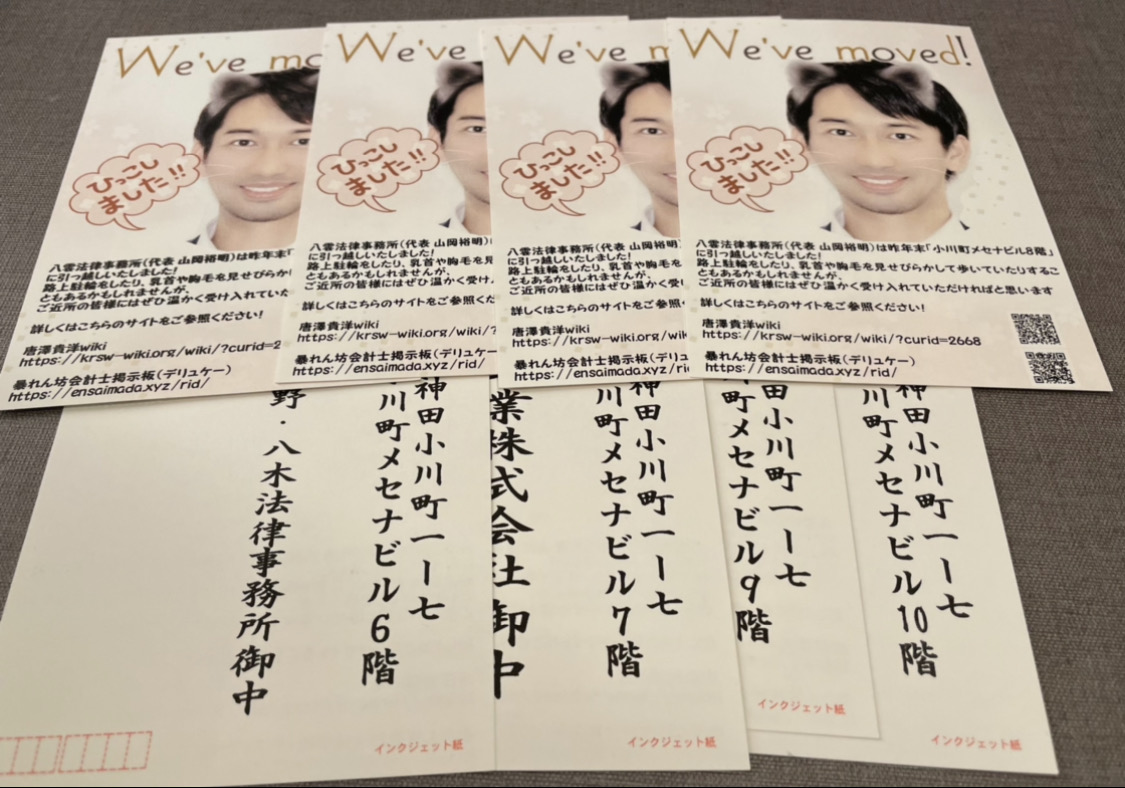 We've mo
ひっこし
ました!!
八雲法律事務所(代表 山岡裕明)は昨年末「
に引っ越しいたしました!
路上駐輪をしたり、乳首や胸毛を見せびらか
ともあるかもしれませんが、
ご近所の皆様にはぜひ温かく受け入れていた
詳しくはこちらのサイトをご参照ください!
唐澤貴洋wiki
https://krsw-wiki.org/wiki/?curid=2
暴れん坊会計士掲示板(デリュケー)
https://ensaimada.xyz/rid/
We've
ひっこし
ました!!
八雲法律事務所(代表 山岡裕明)
に引っ越しいたしました!
路上駐輪をしたり、乳首や胸毛
ともあるかもしれませんが、
ご近所の皆様にはぜひ温かく受け入
詳しくはこちらのサイトをご参照くだ
唐澤貴洋wiki
https://krsw-wiki.org/wiki/?
暴れん坊会計士掲示板(デリュケー
https://ensaimada.xyz/rid/
We've m
ひっこし
ました!!
八雲法律事務所(代表 山岡裕明)
に引っ越しいたしました!
路上駐輪をしたり、乳首や胸毛
ともあるかもしれませんが、
ご近所の皆様にはぜひ温かく受け
詳しくはこちらのサイトをご参照
唐澤貴洋wiki
https://krsw-wiki.org/wik
暴れん坊会計士掲示板(デリ
https://ensaimada.xyz/ri
We've moved!
ひっこし
ました!!
八雲法律事務所(代表 山岡裕明)は昨年末「小川町メセナビル8階」
に引っ越しいたしました!
路上駐輪をしたり、乳首や胸毛を見せびらかして歩いていたりするこ
ともあるかもしれませんが、
ご近所の皆様にはぜひ温かく受け入れていただければと思います
詳しくはこちらのサイトをご参照ください!
唐澤貴洋wiki
https://krsw-wiki.org/wiki/?curid=2668
暴れん坊会計士掲示板(デリュケー)
https://ensaimada.xyz/rid/
神田小川町一ー七
川町メセナビル6階
野・八木法律事務所御中
インクジェット紙
神田小川町一ー七
川町メセナビル7階
業株式会社御中
インクジェット紙
田小川町一ー七
町メセナビル9階
インクジェット紙
神田小川町一ー七
川町メセナビル10階
インクジェット紙